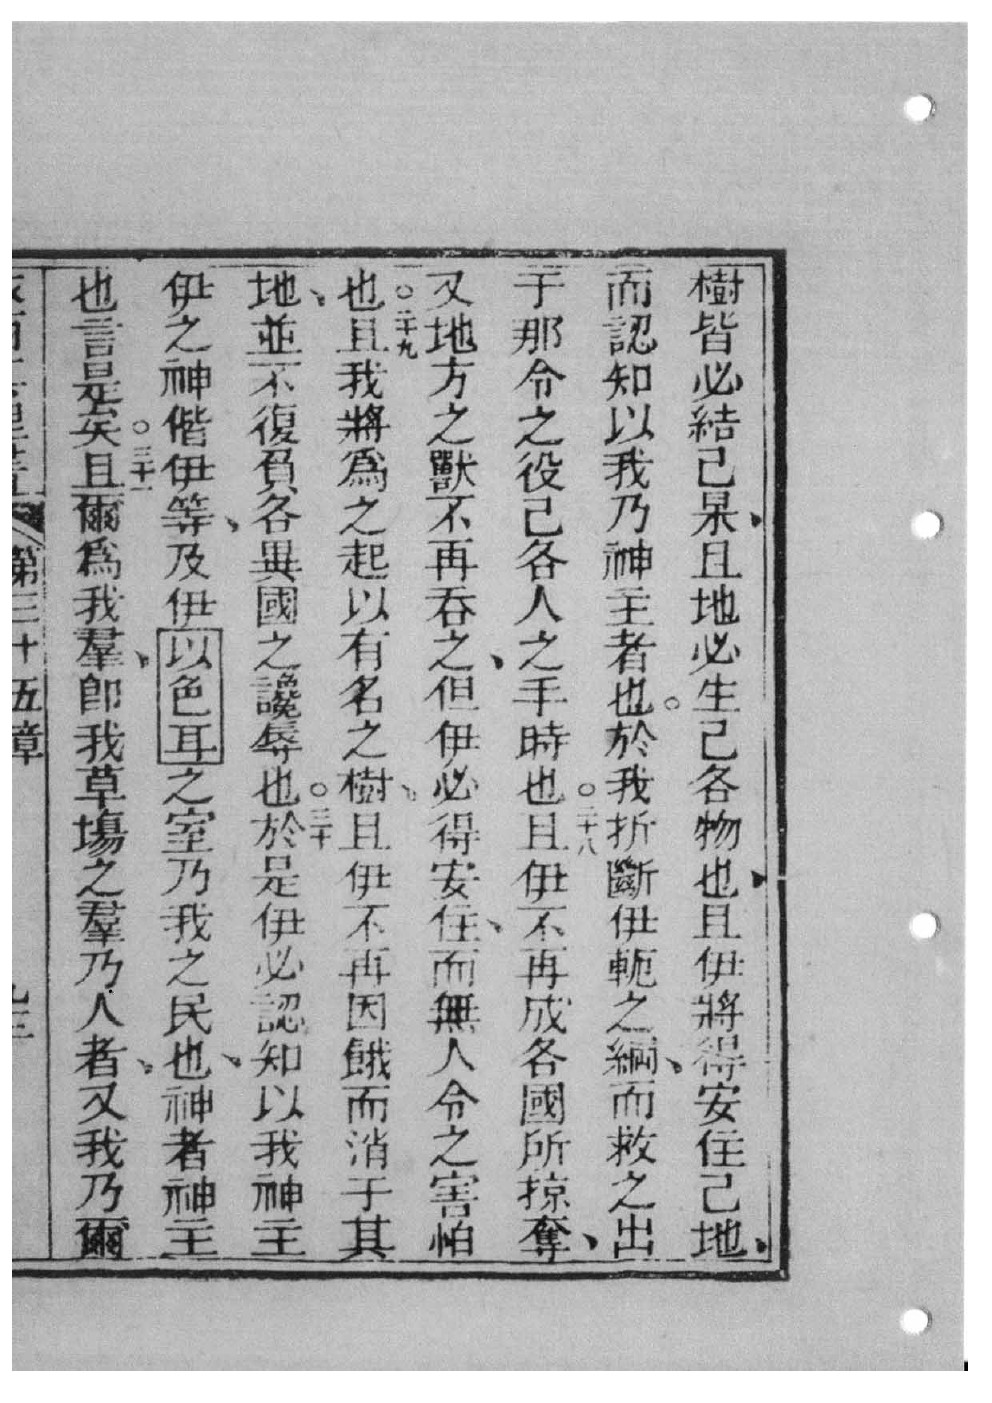 樹皆必結己杲、且地必生己各物也、且伊將得安住己地、
而認知以我乃神主者也。於我折斷伊軛之綱、而救之出
于那令之役己各人之手時也○二十八且伊不再成各國所掠奪、
又地方之獸不再吞之、但伊必得安住、而無人令之害怕
也○二十九且我將爲之起以有名之樹、且伊不再因餓而消于其
地、並不復負各異國之讒辱也○三十於是伊必認知以我神主
伊之神偕伊等、及伊以色耳之室乃我之民也、神者神主
也言是矣○三十一且爾爲我羣、卽我草塲之羣乃人者、又我乃爾
第三十五章